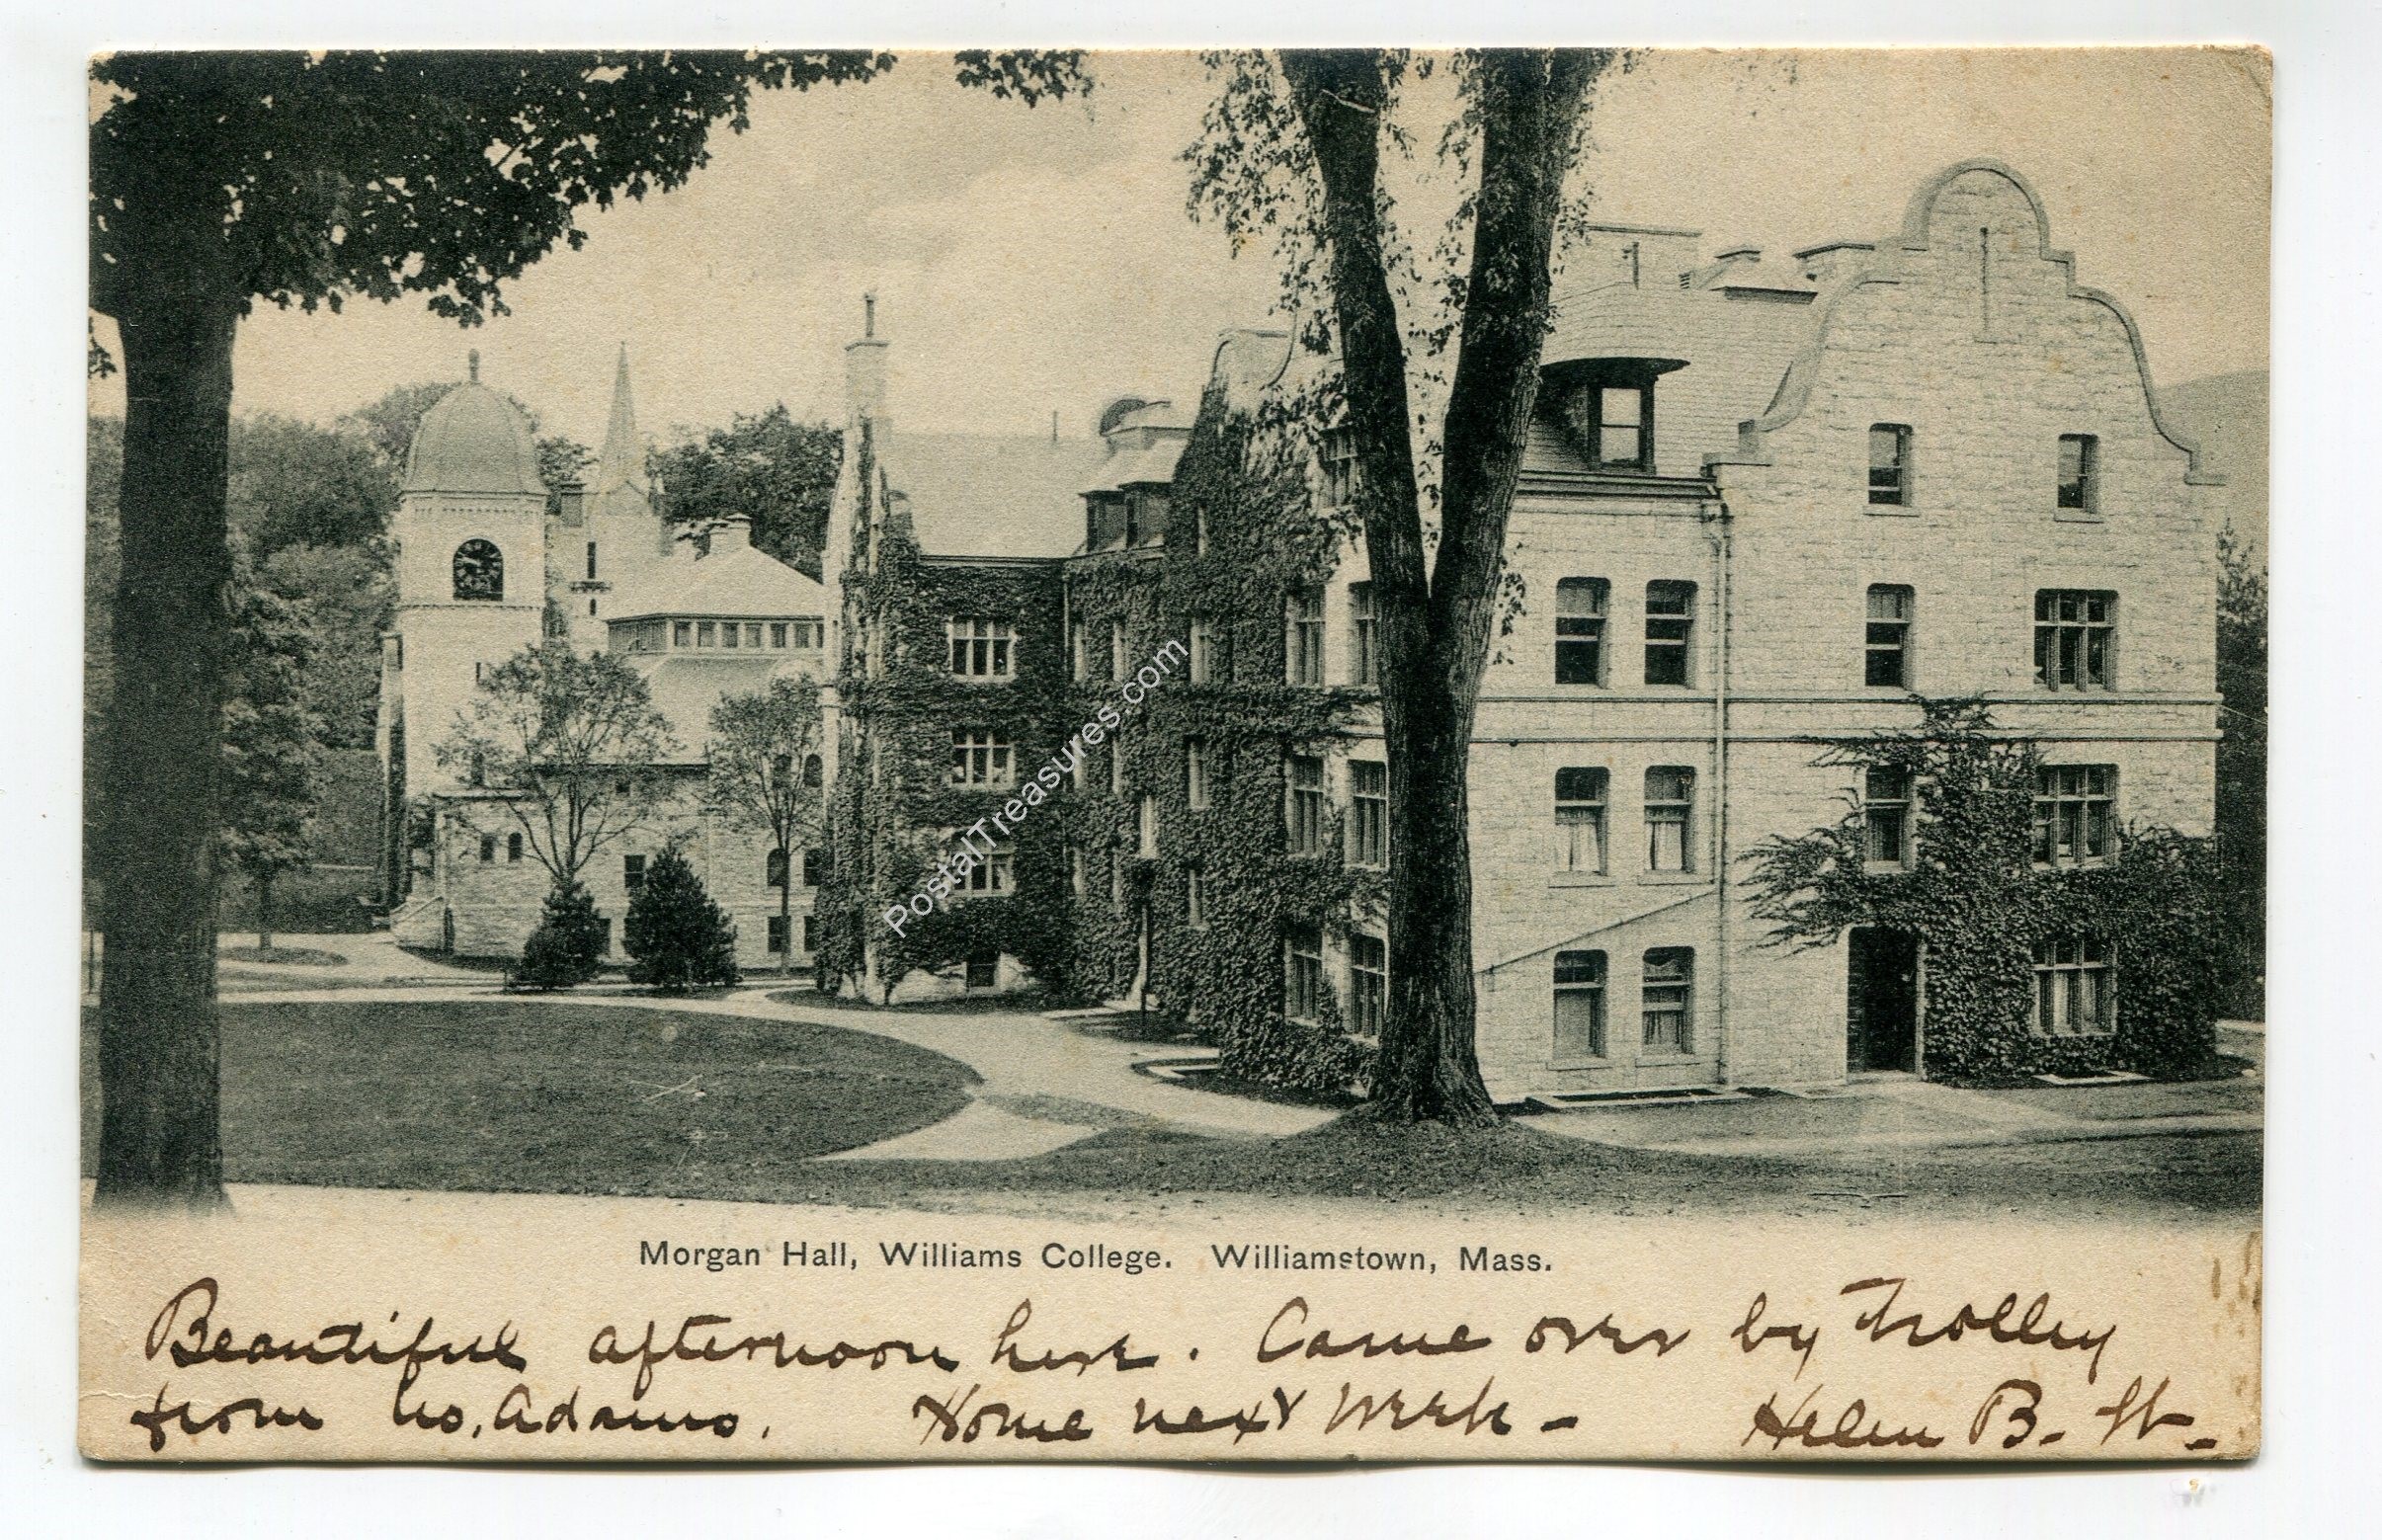 PostalTreasures.com
Morgan Hall, Williams College. Williamstown, Mass.
Beautiful afternoon here. Came over by trolley
from No. Adams. Home next week -
Helen B.